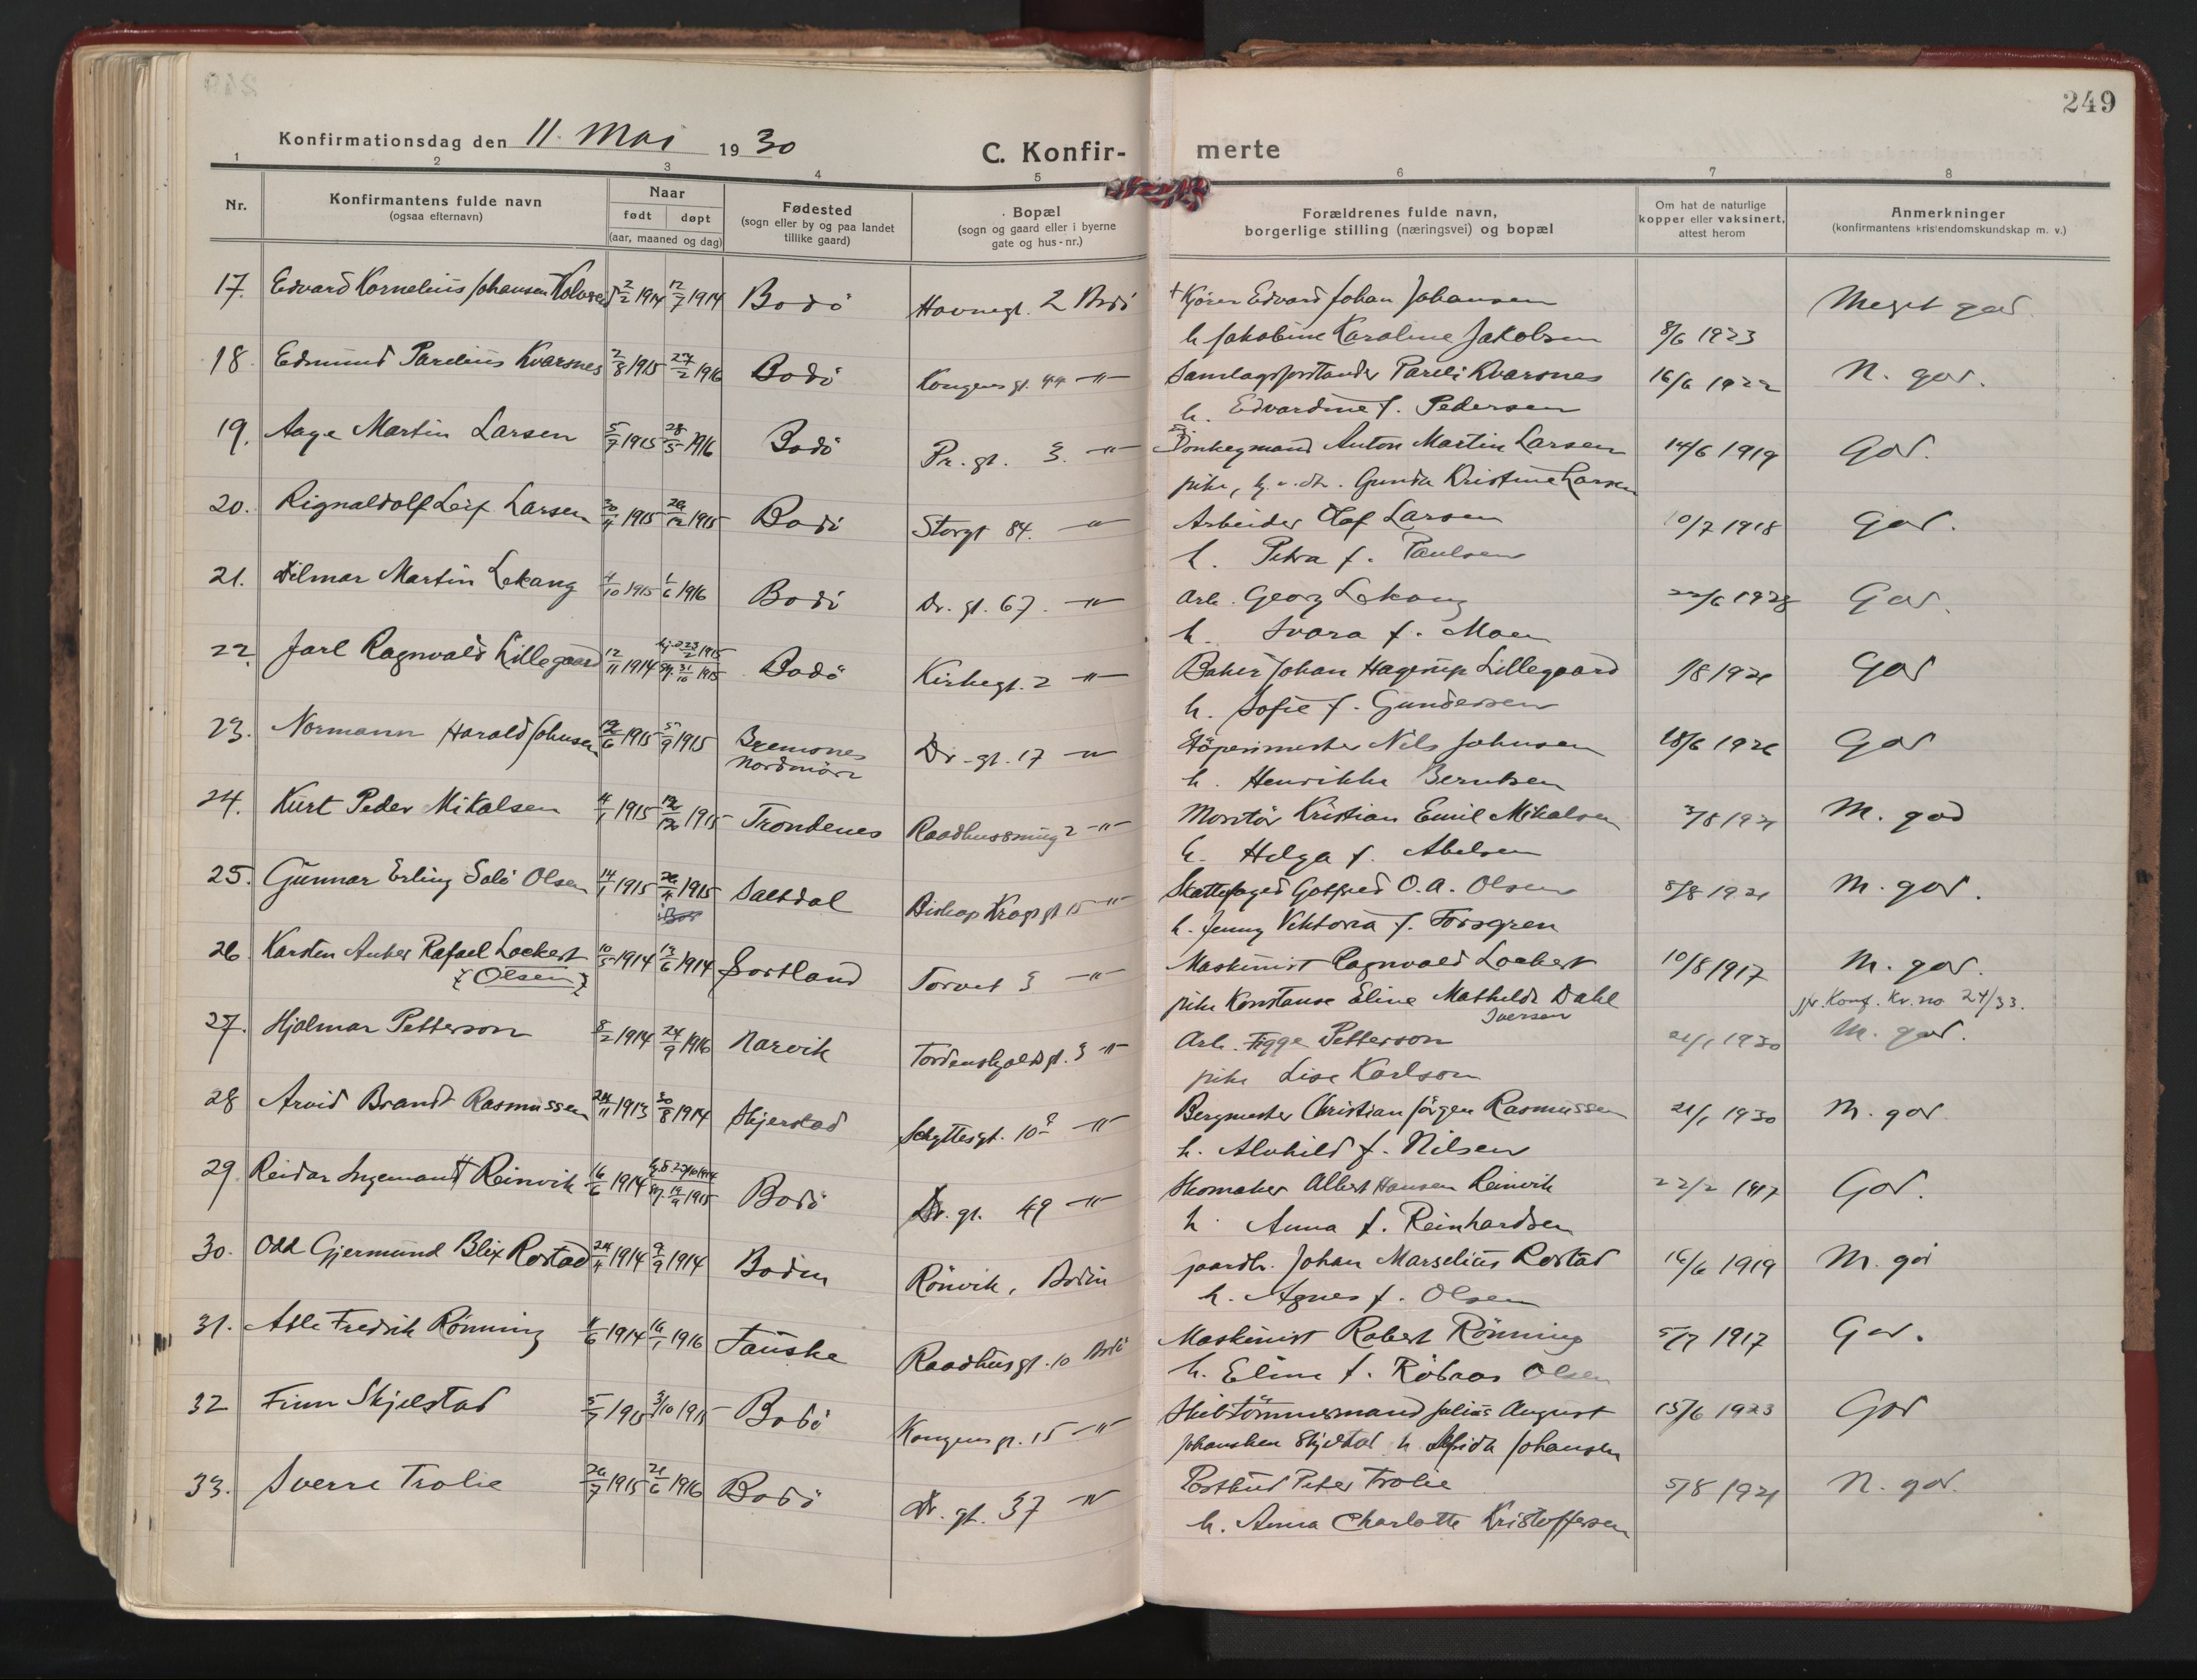 249
Konfirmationsdag den 11. Mai 1930
C. Konfir- merte
1 2 3 4 5 6 7 8
Nr.
Konfirmantens fulde navn
(ogsaa efternavn)
Naar
født døpt
(aar, maaned og dag)
Fødested
(sogn eller by og paa landet
tillike gaard)
Bopæl
(sogn og gaard eller i byerne
gate og hus-nr.)
Forældrenes fulde navn,
borgerlige stilling (næringsvei) og bopæl
Om hat de naturlige
kopper eller vaksinert,
attest herom
Anmerkninger
(konfirmantens kristendomskundskap m. v.)
17. Edvard Kornelius Johansen 2/2 1914 12/7 1914 Bodö Havnegt. 2 Bodö + Kjörer Edvard Johan Johansen Meget god
h Jakobine Karoline Jakobsen 8/6 1923
18. Edmund Parelius Kvarsnes 2/8 1915 27/2 1916 Bodö Kongens gt. 44 -"- Samlagsbestander Pareli Kvarsnes 16/6 1922 N. god.
h. Edvardine f. Pedersen
19. Aage Martin Larsen 5/7 1915 28/5 1916 Bodö Pr. gt. 3. -"- Donkeymand Anton Martin Larsen 14/6 1919 God.
pike, Gunda Kristine Larsen
20. Rignaldolf Leif Larsen 30/4 1915 26/12 1915 Bodö Storgt 84. -"- Arbeider Olaf Larsen 10/7 1918 God.
h. Petra f. Paulsen
21. Dilmar Martin Lekang 4/10 1915 1/6 1916 Bodö Dr. gt. 67. -"- Arb. Georg Lekang 22/6 1928 God.
h. Svara f. Moen
22. Jarl Ragnvald Lillegaard 12/11 1914 hj.d 23/2 1915 Bodö Kirkegt. 2 -"- Baker Johan Hagerup Lillegaard 1/8 1921 God
31/10 1915 h. Sofie f. Gundersen
23. Normann Harald Johnsen 12/6 1915 5/9 1915 Bremsnes Dr. gt. 17 -"- Stöperimester Nils Johnsen 18/6 1926 God
Nordmöre h. Henrikke Berntsen
24. Kurt Peder Mikalsen 4/1 1915 12/12 1915 Trondenes Raadhussming 2 -"- Montör Kristian Emil Mikalsen 3/8 1921 M. god
h. Helga f. Abelsen
25. Gunnar Erling Solö Olsen 14/1 1915 26/4 1915 Saltdal Biskop Krogs gt 15 -"- Skattefoged Gotfred O. A. Olsen 5/8 1921 M. god.
h. Jenny Viktoria f. Forsgren
26. Karsten Anker Rafael Lockert 10/5 1914 17/6 1914 Sortland Torvet 3 -"- Maskinist Ragnvald Lockert 10/8 1917 M. god.
{Olsen} pike Konstanse Eline Mathilde Dahl jfr. Konf. Kr. no 24/33.
Iversen
27. Hjalmar Petterson 8/2 1914 24/9 1916 Narvik Tordenskjolds gt. 3 -"- Arb. Figge Petterson 21/1 1930 M. god.
pike Lise Karlson
28 Arvid Brandt Rasmussen 24/11 1913 30/8 1914 Skjerstad Schyttesgt. 10 -"- Bergmester Christian Jörgen Rasmussen 21/1 1930 M. god.
h. Alvhild f. Nilsen
29. Reidar Ingemann Reinvik 16/6 1914 hj.d. 25/10 1914 Bodö Dr. gt. 49 -"- Skomaker Albert Hansen Reinvik 22/2 1917 God.
19/9 1915 h. Anna f. Reinhardsen
30. Odd Gjermund Blix Rostad 24/4 1914 9/9 1914 Bodin Rönvik, Bodin gaardbr. Johan Marselius Rostad 16/6 1919 M. god
h. Agnes f. Olsen
31. Atle Fredrik Rönning 4/6 1914 16/1 1916 Fauske Raadhusgt. 10 Bodö Maskinist Robert Rönning 5/7 1917 God.
h. Eline f. Olsen
32 Finn Skjelstad 5/7 1915 3/10 1915 Bodö Kongens gt. 15 -"- Skibstömmermand Julius August 15/6 1923 God
Johansen Skjelstad h. Alfrida Johansen
33. Sverre Trolie 26/7 1915 21/6 1916 Bodö Dr. gt. 37 -"- Postbud Peter Trolie 5/8 1921 N. god.
h. Anna Charlotte Kristoffersen